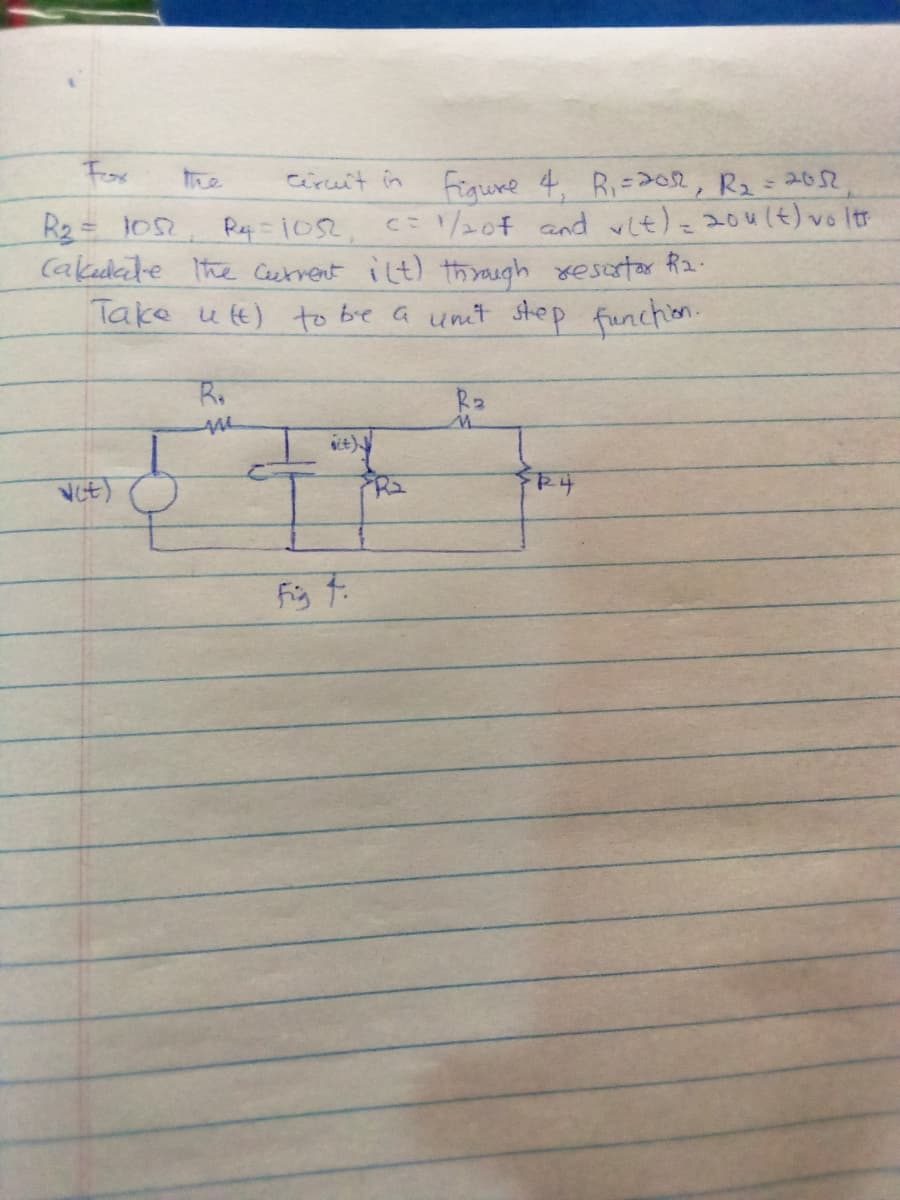 For the circuit in figure 4, R₁=20Ω, R₂=20Ω,
R₃= 10Ω, R4=10Ω, C=1/20f and v(t)=20u(t) volts
Calculate the current i(t) through resistor R2.
Take u(t) to be a unit step function.
R₁ R3
i(t)
V(t) C R2 R4
Fig 4.